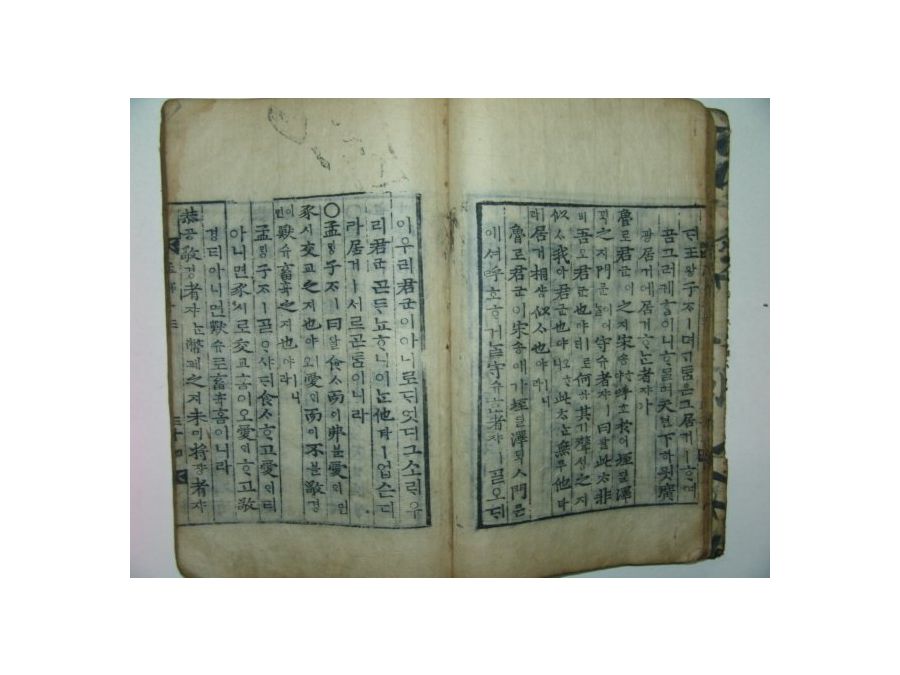 뎌王왕子ᄌᆞㅣ며ᄀᆞᆮ톰은그居거ㅣᄒᆞ여
곰그러케홈이니ᄒᆞ믈며天텬下하읫廣
광居거에居거ᄒᆞᄂᆞᆫ者쟈ᄯᆞ녀
魯로君군이之지宋송ᄒᆞ야呼호於어垤딜澤
ᄐᆡᆨ之지門문이어ᄂᆞᆯ守슈者쟈ㅣ曰왈此ᄎᆞㅣ非
비吾오君군也야ㅣ로ᄃᆡ何하其기聲셩之지
似ᄉᆞ我아君군也야오ᄒᆞ니此ᄎᆞᄂᆞᆫ無무他타
라居거相샹似ᄉᆞ也야ㅣ니라
魯로君군이宋송애가垤딜澤ᄐᆡᆨㅅ門문
에셔呼호ᄒᆞ거ᄂᆞᆯ守슈ᄒᆞᄂᆞᆫ者쟈ㅣᄀᆞᆯ오ᄃᆡ
이우리君군이아니로ᄃᆡ엇디그소ᄅᆡ우
리君군ᄀᆞᆮᄐᆞ뇨ᄒᆞ니이ᄂᆞᆫ他타ㅣ업슨디
라居거ㅣ서르ᄀᆞᆮ톰이니라
○孟ᄆᆡᆼ子ᄌᆞㅣ曰왈食ᄉᆞ而이弗블愛ᄋᆡ면
豕시交교之지也야오愛ᄋᆡ而이不블敬경
이면獸슈畜휵之지也야ㅣ니라
孟ᄆᆡᆼ子ᄌᆞㅣᄀᆞᆯᄋᆞ샤ᄃᆡ食ᄉᆞᄒᆞ고愛ᄋᆡ티
아니면豕시로交교홈이오愛ᄋᆡᄒᆞ고敬
경티아니면獸슈로畜휵홈이니라
恭공敬경者쟈ᄂᆞᆫ幣폐之지未미將쟝者쟈